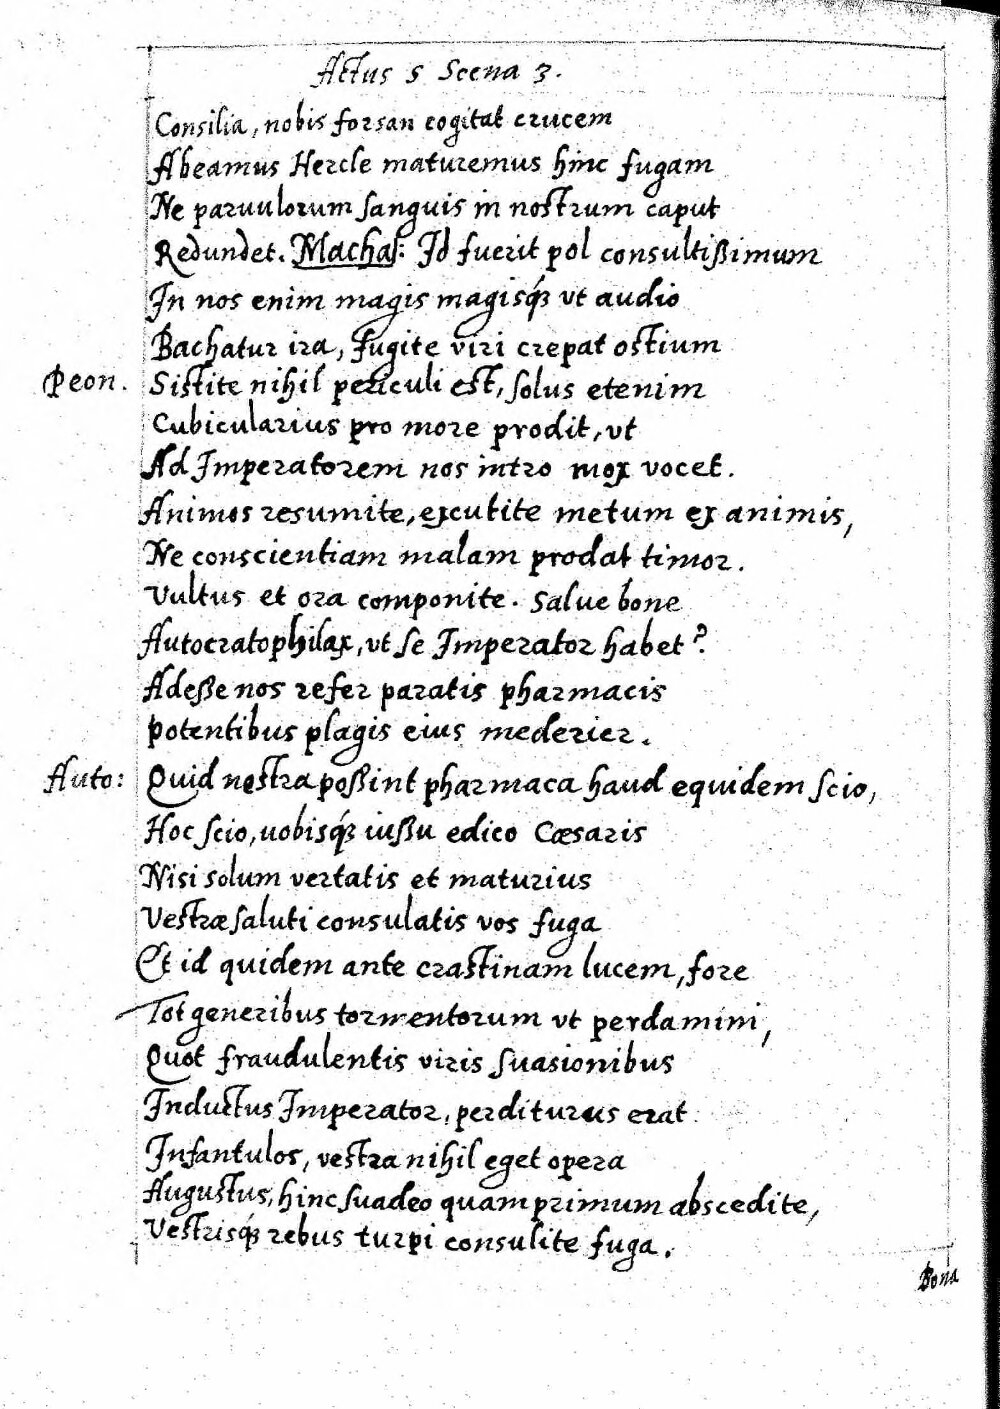 Actus 5 Scena 3.
Consilia, nobis forsan cogitat crucem
Abeamus Hercle maturemus hinc fugam
Ne paruulorum sanguis in nostrum caput
Redundet. Machas: Id fuerit pol consultißimum
In nos enim magis magisq́ꝫ vt audio
Bachatur ira, fugite viri crepat ostium
Peon. Sistite nihil periculi est, solus etenim
Cubicularius pro more prodit, vt
Ad Imperatorem nos intro mox vocet.
Animos resumite, excutite metum ex animis,
Ne conscientiam malam prodat timor.
Vultus et ora componite. Salue bone
Autocratophilax, vt se Imperator habet?
Adeße nos refer paratis pharmacis
Potentibus plagis eius mederier.
Auto: Quid nostra poßint pharmaca haud equidem scio,
Hoc scio, uobisq́ꝫ iußu edico Cæsaris
Nisi solum vertatis et maturius
Vestræ saluti consulatis vos fuga
Et id quidem ante crastinam lucem, fore
Tot generibus tormentorum vt perdamini,
Quot fraudulentis viris suasionibus
Inductus Imperator, perditurus erat
Infantulos, vestra nihil eget opera
Augustus, hinc suadeo quam primum abscedite,
Vestrisq́ꝫ rebus turpi consulite fuga.
Bona